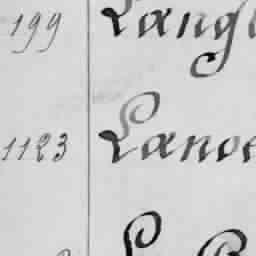 199 Langl
1123 Lanoe